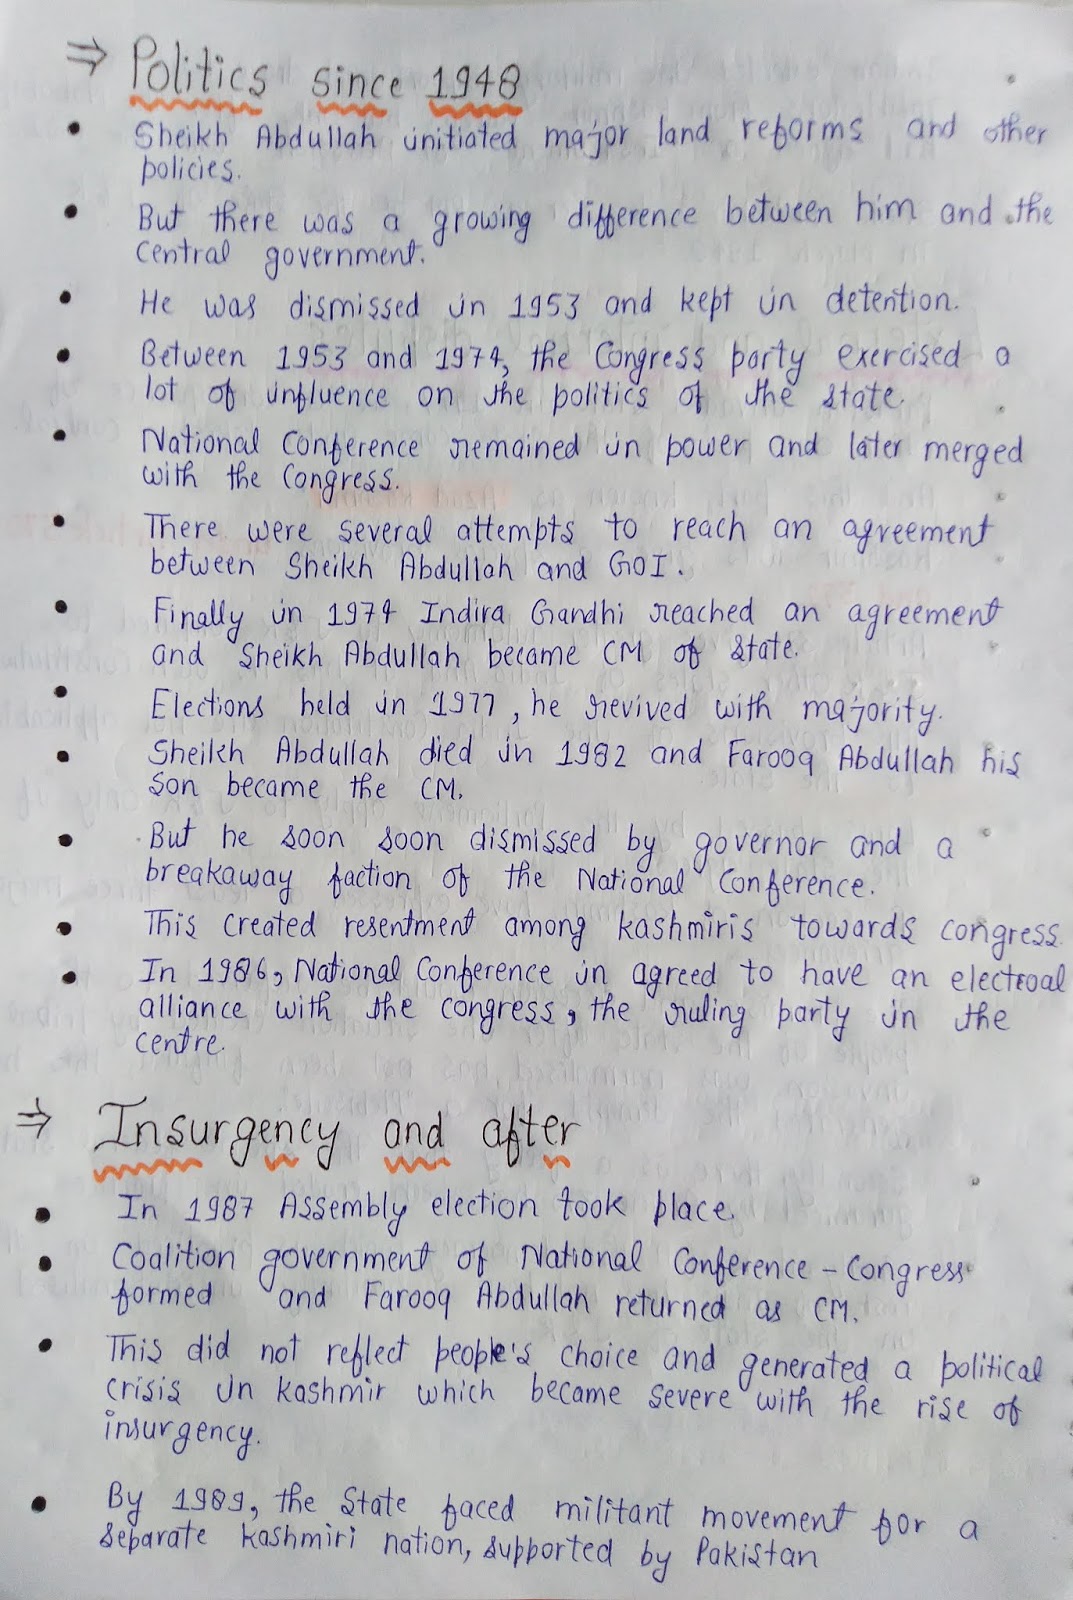 ⇒ Politics since 1948
• Sheikh Abdullah initiated major land reforms and other
policies.
• But there was a growing difference between him and the
Central government.
• He was dismissed in 1953 and kept in detention.
• Between 1953 and 1974, the Congress party exercised a
lot of influence on the politics of the state.
• National Conference remained in power and later merged
with the Congress.
• There were several attempts to reach an agreement
between Sheikh Abdullah and GOI.
• Finally in 1974 Indira Gandhi reached an agreement
and Sheikh Abdullah became CM of state.
• Elections held in 1977, he revived with majority.
• Sheikh Abdullah died in 1982 and Farooq Abdullah his
son became the CM.
• But he soon soon dismissed by governor and a
breakaway faction of the National Conference.
• This created resentment among kashmiris towards congress.
• In 1986, National Conference in agreed to have an electroal
alliance with the congress, the ruling party in the
centre.
⇒ Insurgency and after
• In 1987 Assembly election took place.
• Coalition government of National Conference - Congress
formed and Farooq Abdullah returned as CM.
• This did not reflect people's choice and generated a political
crisis in kashmir which became severe with the rise of
insurgency.
• By 1989, the State faced militant movement for a
separate kashmiri nation, supported by Pakistan